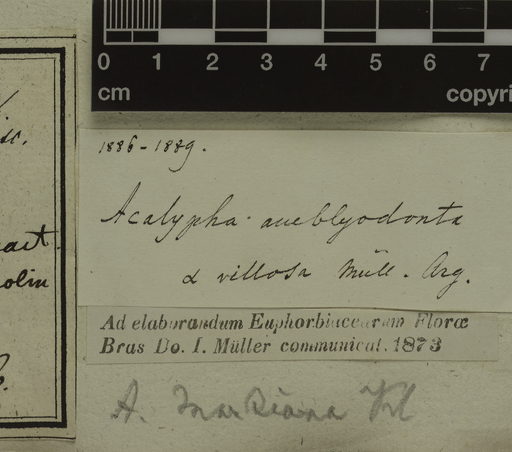 0 1 2 3 4 5 6 7
cm copyri
1886-1889.
Acalypha amblyodonta
α villosa Müll. Arg.
Ad elaborandum Euphorbiacearum Floræ
Bras Do. I. Müller communicat. 1873
A. Martiana Kl